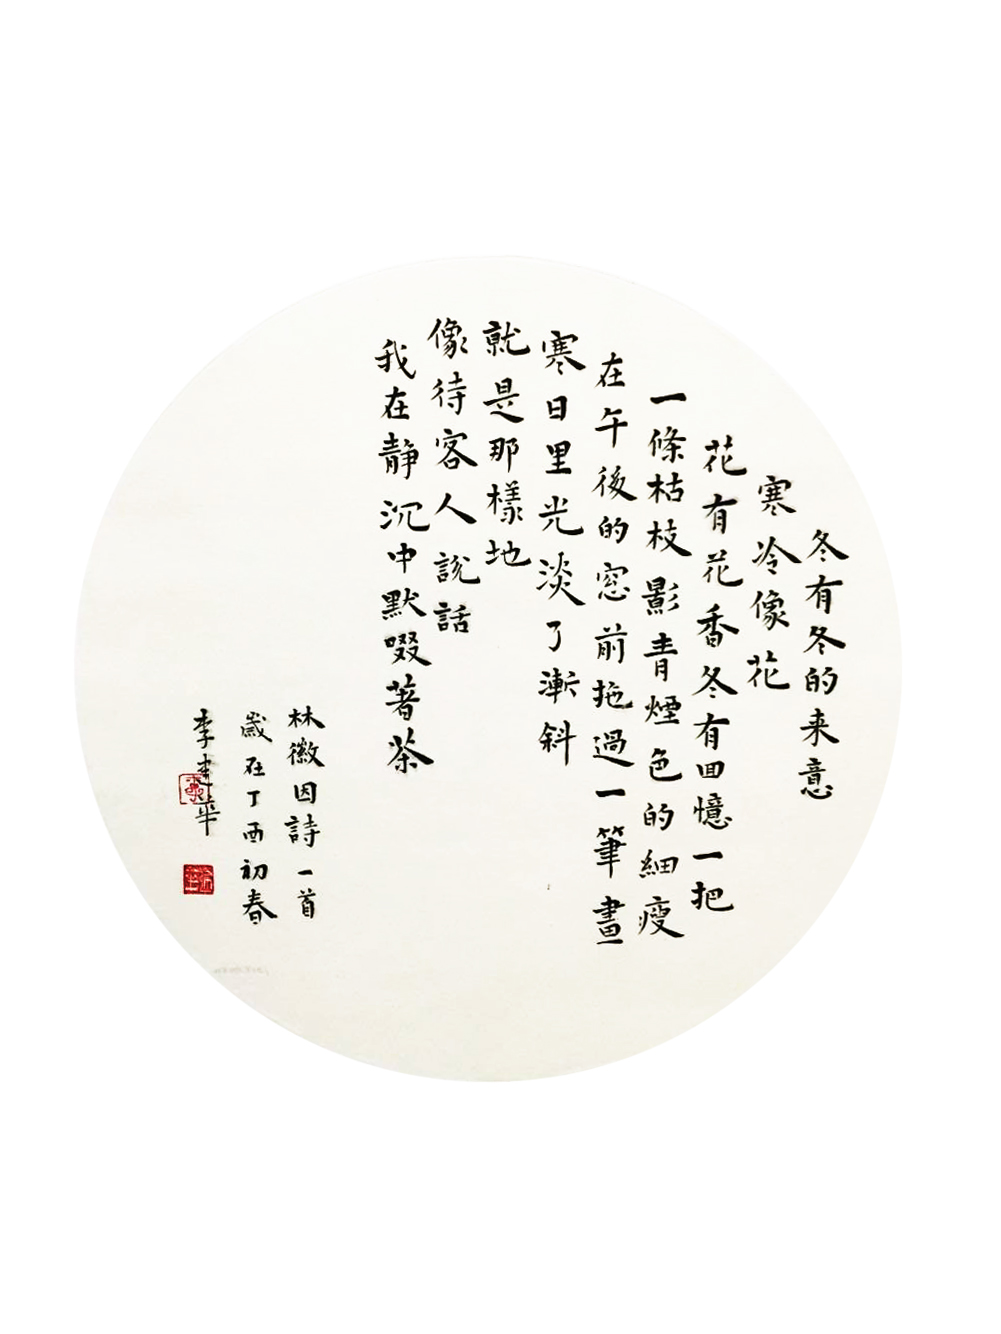 冬有冬的来意
寒冷像花
花有花香冬有回憶一把
一條枯枝影青煙色的細瘦
在午後的窓前拖過一筆畫
寒日里光淡了漸斜
就是那樣地
像待客人説話
我在静沉中默啜著茶
林徽因詩一首
歲在丁酉初春
李建华